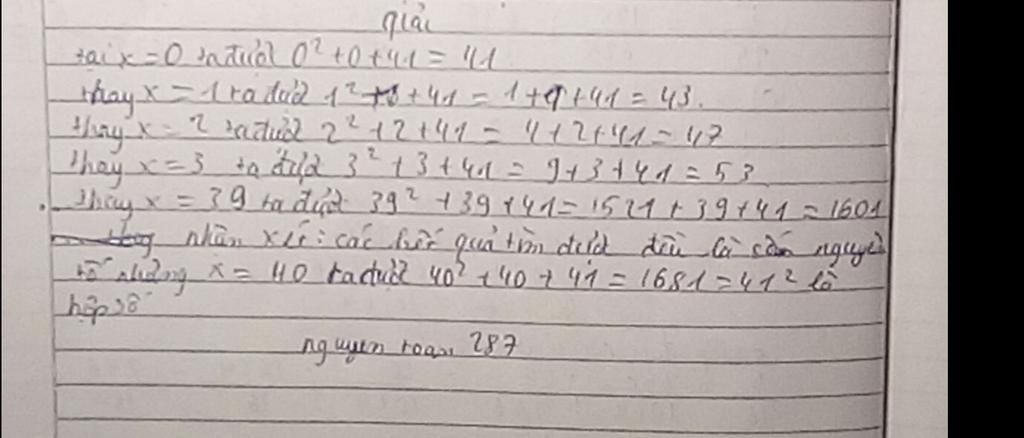 giải
tại x = 0 ta được 0² + 0 + 41 = 41
thay x = 1 ta được 1² + 1 + 41 = 1 + 1 + 41 = 43.
thay x = 2 ta được 2² + 2 + 41 = 4 + 2 + 41 = 47
thay x = 3 ta được 3² + 3 + 41 = 9 + 3 + 41 = 53
thay x = 39 ta được 39² + 39 + 41 = 1521 + 39 + 41 = 1601
nhận xét: các kết quả tìm được đều là số nguyên
tố nhưng x = 40 ta được 40² + 40 + 41 = 1681 = 41² là
hợp số
nguyen toan 287